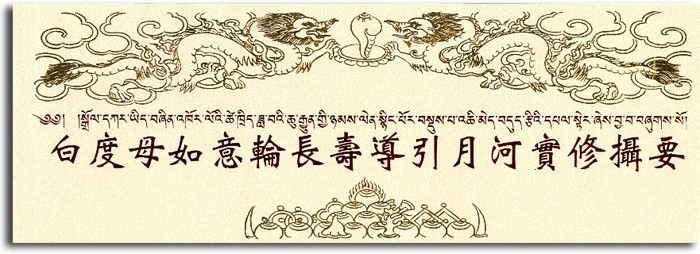 ༄༅། །སྒྲོལ་དཀར་ཡིད་བཞིན་འཁོར་ལོའི་ཚེ་ཁྲིད་ཟླ་བའི་ཆུ་རྒྱུན་གྱི་ཉམས་ལེན་སྙིང་པོར་བསྡུས་པ་འཆི་མེད་བདུད་རྩིའི་དཔལ་སྟེར་ཞེས་བྱ་བ་བཞུགས་སོ།
白度母如意輪長壽導引月河實修攝要